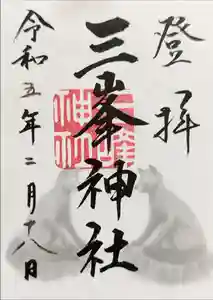 登拝
三峯神社
令和五年二月十八日